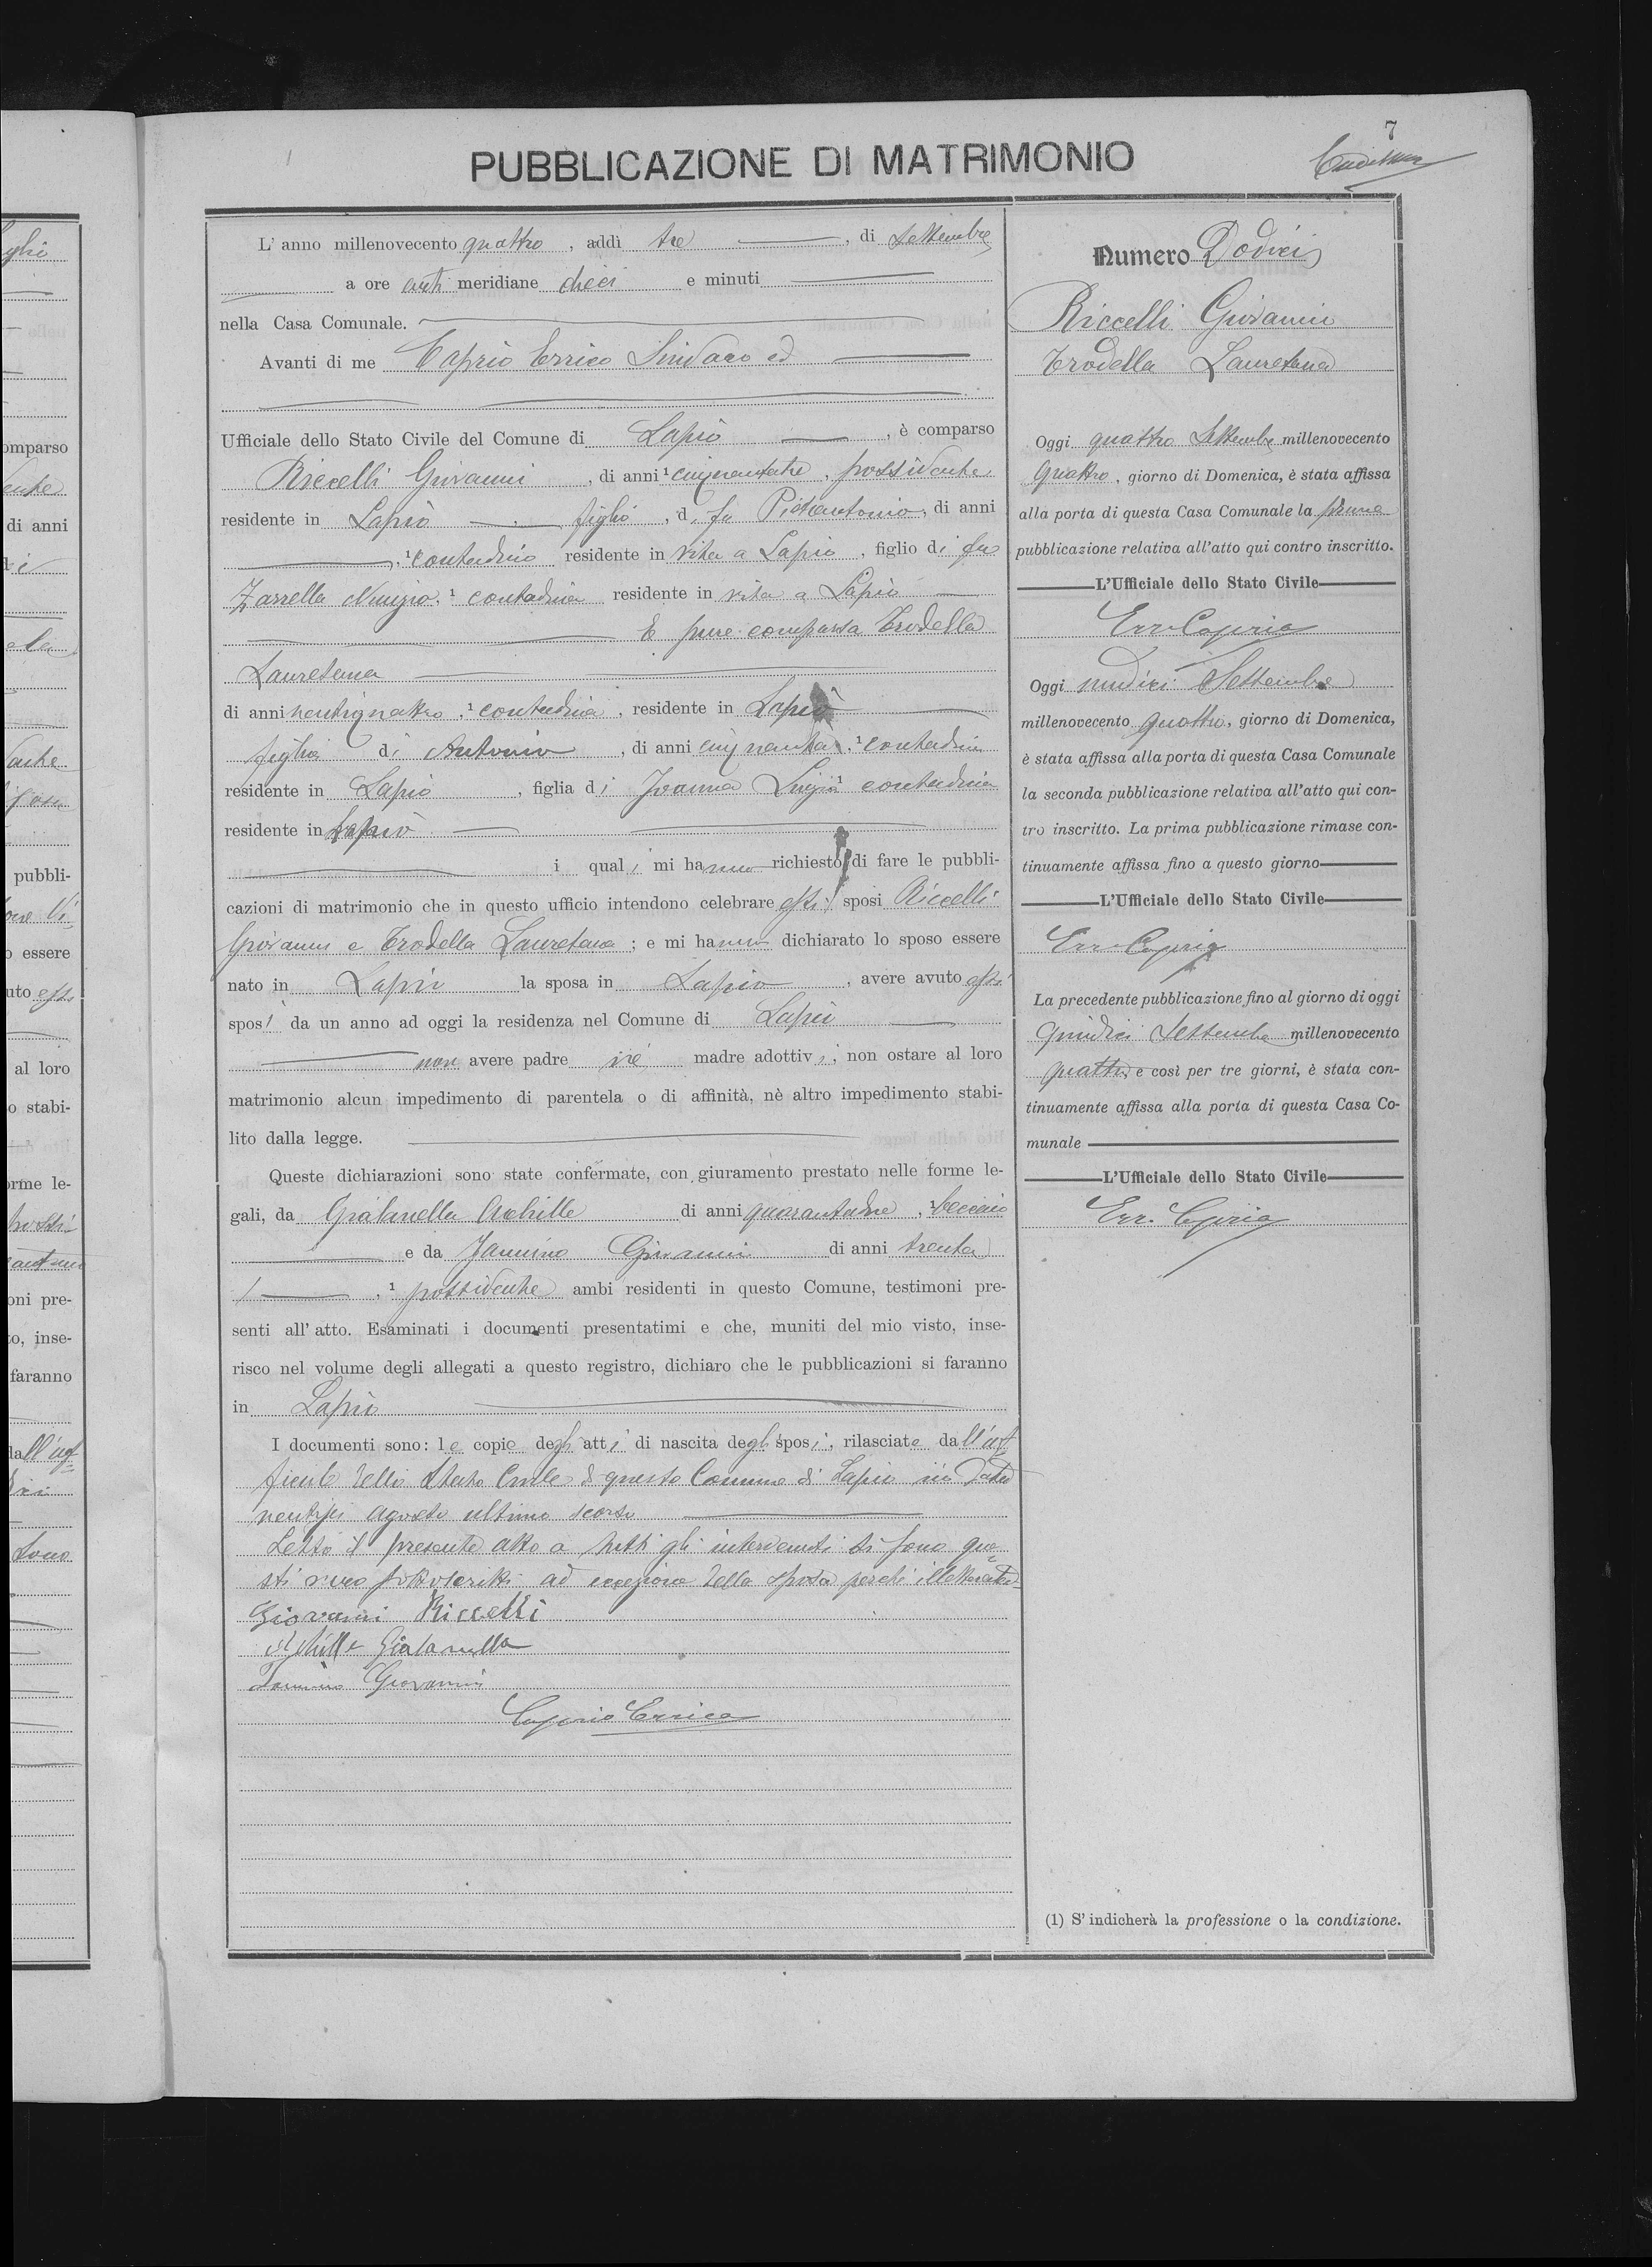 7
PUBBLICAZIONE DI MATRIMONIO
L'anno millenovecento quattro, addì tre, di Settembre
a ore anti meridiane dieci e minuti
nella Casa Comunale.
Avanti di me Caprio Errico Sindaco ed
Ufficiale dello Stato Civile del Comune di Lapio, è comparso
Riccelli Giovanni, di anni ¹ cinquantatre, possidente
residente in Lapio figlio, di fu Pietrantonio, di anni
, ¹ contadino residente in vita a Lapio, figlio di fu
Zarrella Nunzia, ¹ contadina residente in vita a Lapio
E pure comparsa Trodella
Lauretana
di anni ventiquattro, ¹ contadina, residente in Lapio
figlia di Antonio, di anni cinquanta, ¹ contadino
residente in Lapio, figlia di Joanna Luigia ¹ contadina
residente in Lapio
i quali mi hanno richiesto di fare le pubbli-
cazioni di matrimonio che in questo ufficio intendono celebrare essi sposi Riccelli
Giovanni e Trodella Lauretana; e mi hanno dichiarato lo sposo essere
nato in Lapio la sposa in Lapio, avere avuto essi
sposi da un anno ad oggi la residenza nel Comune di Lapio
non avere padre nè madre adottivi, non ostare al loro
matrimonio alcun impedimento di parentela o di affinità, nè altro impedimento stabi-
lito dalla legge.
Queste dichiarazioni sono state confermate, con giuramento prestato nelle forme le-
gali, da Gialanella Achille di anni quarantadue, ¹ beccaio
e da Jannino Giovanni di anni trenta
, ¹ possidente ambi residenti in questo Comune, testimoni pre-
senti all'atto. Esaminati i documenti presentatimi e che, muniti del mio visto, inse-
risco nel volume degli allegati a questo registro, dichiaro che le pubblicazioni si faranno
in Lapio
I documenti sono: le copie degli atti di nascita degli sposi, rilasciate dall'uf-
ficiale dello Stato Civile di questo Comune di Lapio in data
ventisei agosto ultimo scorso
Letto il presente atto a tutti gli intervenuti si sono que-
sti meco sottoscritti ad eccezione della sposa perchè illetterata
Giovanni Riccelli
Achille Gialanella
Jannino Giovanni
Caprio Errico
Numero Dodici
Riccelli Giovanni
Trodella Lauretana
Oggi quattro Settembre millenovecento
quattro, giorno di Domenica, è stata affissa
alla porta di questa Casa Comunale la prima
pubblicazione relativa all'atto qui contro inscritto.
L'Ufficiale dello Stato Civile
Err. Caprio
Oggi undici Settembre
millenovecento quattro, giorno di Domenica,
è stata affissa alla porta di questa Casa Comunale
la seconda pubblicazione relativa all'atto qui con-
tro inscritto. La prima pubblicazione rimase con-
tinuamente affissa fino a questo giorno
L'Ufficiale dello Stato Civile
Err. Caprio
La precedente pubblicazione fino al giorno di oggi
quindici Settembre millenovecento
quattro e così per tre giorni, è stata con-
tinuamente affissa alla porta di questa Casa Co-
munale
L'Ufficiale dello Stato Civile
Err. Caprio
(1) S'indicherà la professione o la condizione.